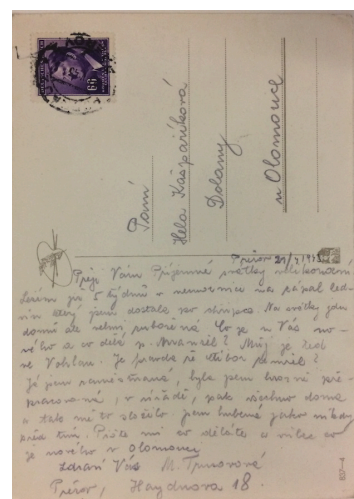 60
Paní
Hela Kašpaříková
Dolany
u Olomouce
Přerov 21/4 1943
Přeji Vám Příjemné svátky velikonoční
Ležím již 5 týdnů v nemocnici na zápal led-
vin který jsem dostala po chřipce. Na svátky jdu
domů ale nejsu Co je u Vás no-
vého a co dělá p. ? Můj je teď
ve Vsetíně. Je pravda že Ctibor zemřel?
Já jsem zaměstnaná, byla jsem hrozně pře-
pracovaná, v úřadě, pak všechno doma
a tak mě to složilo. jsem hubená jako nikdy
před tím. Pište mi co děláte a vůbec co
je nového v Olomouci
Zdraví Vás M.
Přerov, Haydnova 18.